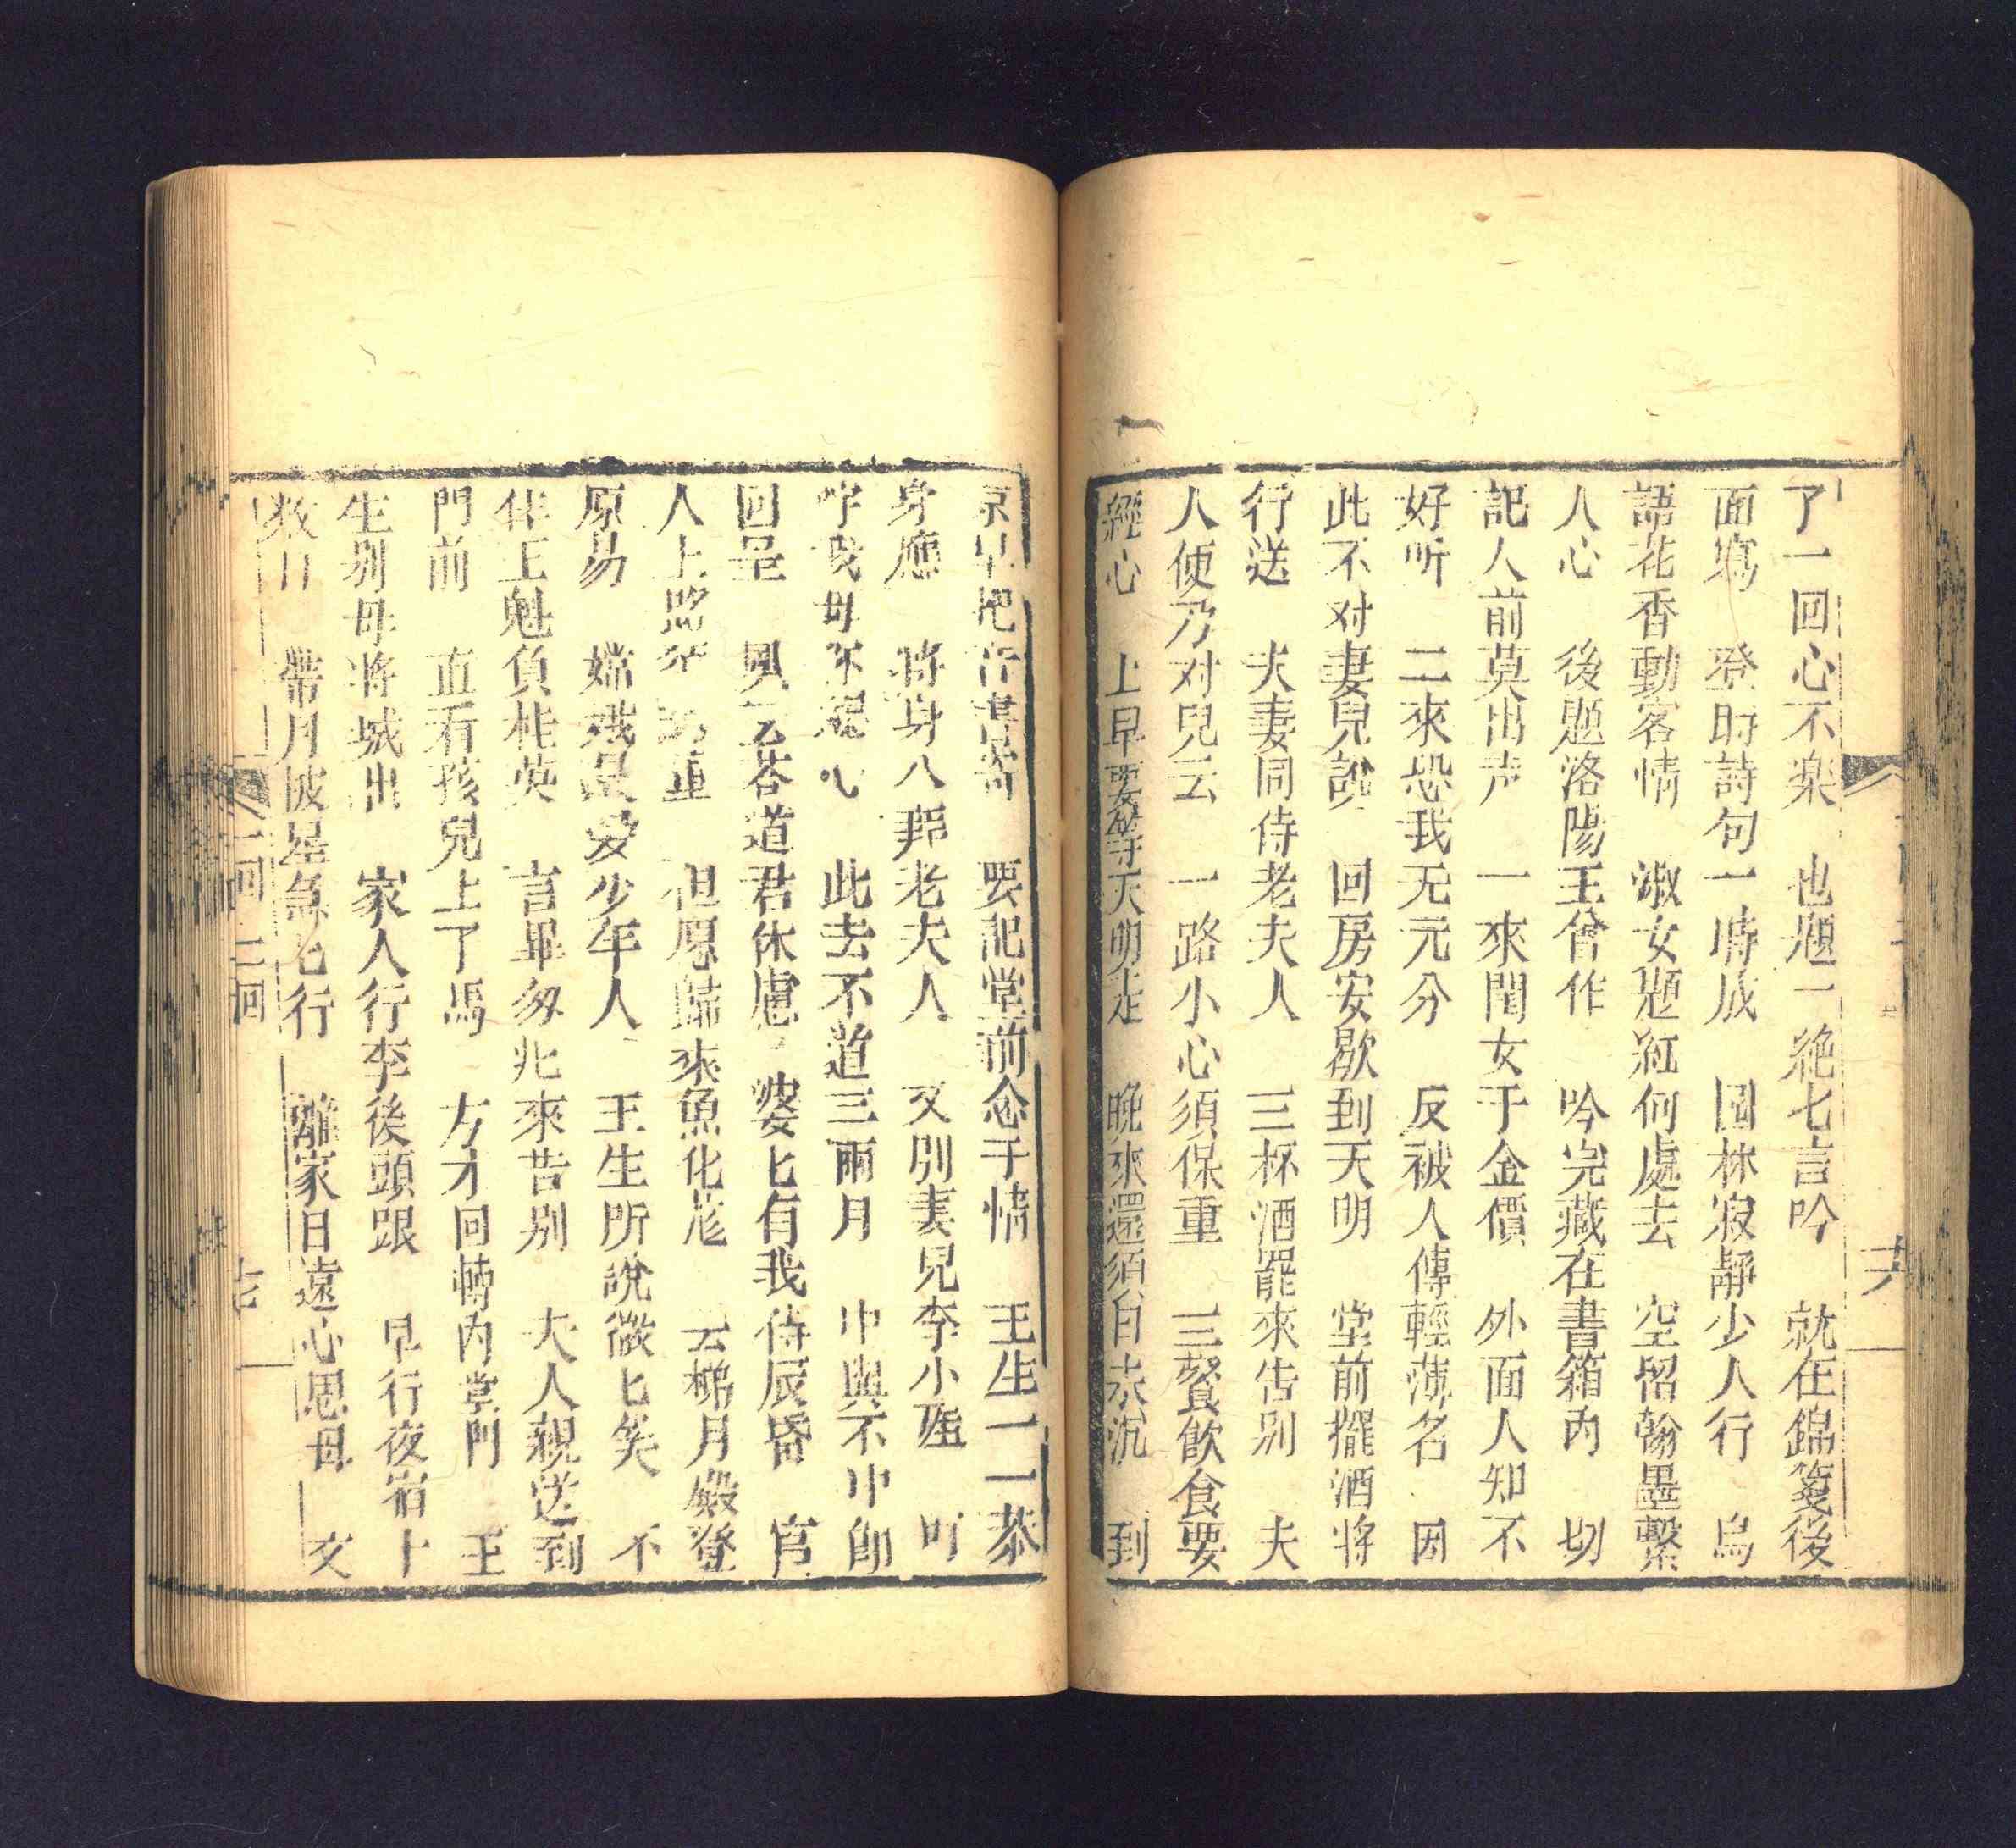 了一回心不楽 也題一絶七言吟 就在錦箋後
面寫 登時詩句一時成 園林寂靜少人行 鳥
語花香動客情 淑女題紅何處去 空留翰墨繫
人心 後題洛陽王曾作 吟完藏在書箱內 切
記人前莫出声 一來閨女千金價 外面人知不
好听 二來恐我无元分 反被人傳輕薄名 因
此不对妻兒說 回房安歇到天明 堂前擺酒將
行送 夫妻同侍老夫人 三杯酒罷來告別 夫
人便乃对兒云 一路小心須保重 三餐飲食要
經心 上早要等天明走 晚來還須日未沉 到
京早把音書寄 要記堂前念子情 王生一一恭
身應 將身八拜老夫人 又別妻兒李小姐 叮
我母 心 此去不道三兩月 中與不中即
回呈 氏答道君休慮 婆匕有我侍辰昏 官
人上路 重 但愿歸來魚化龙 云梯月殿登
原易 嫦娥最爱少年人 王生所說微匕笑 不
作王魁負桂英 言畢匆匕來告別 夫人親送到
門前 直看孩兒上了馬 方才回轉內堂門 王
生別母將城出 家人行李後頭跟 早行夜宿十
数日 帶月披星急匕行 離家日遠心思母 文